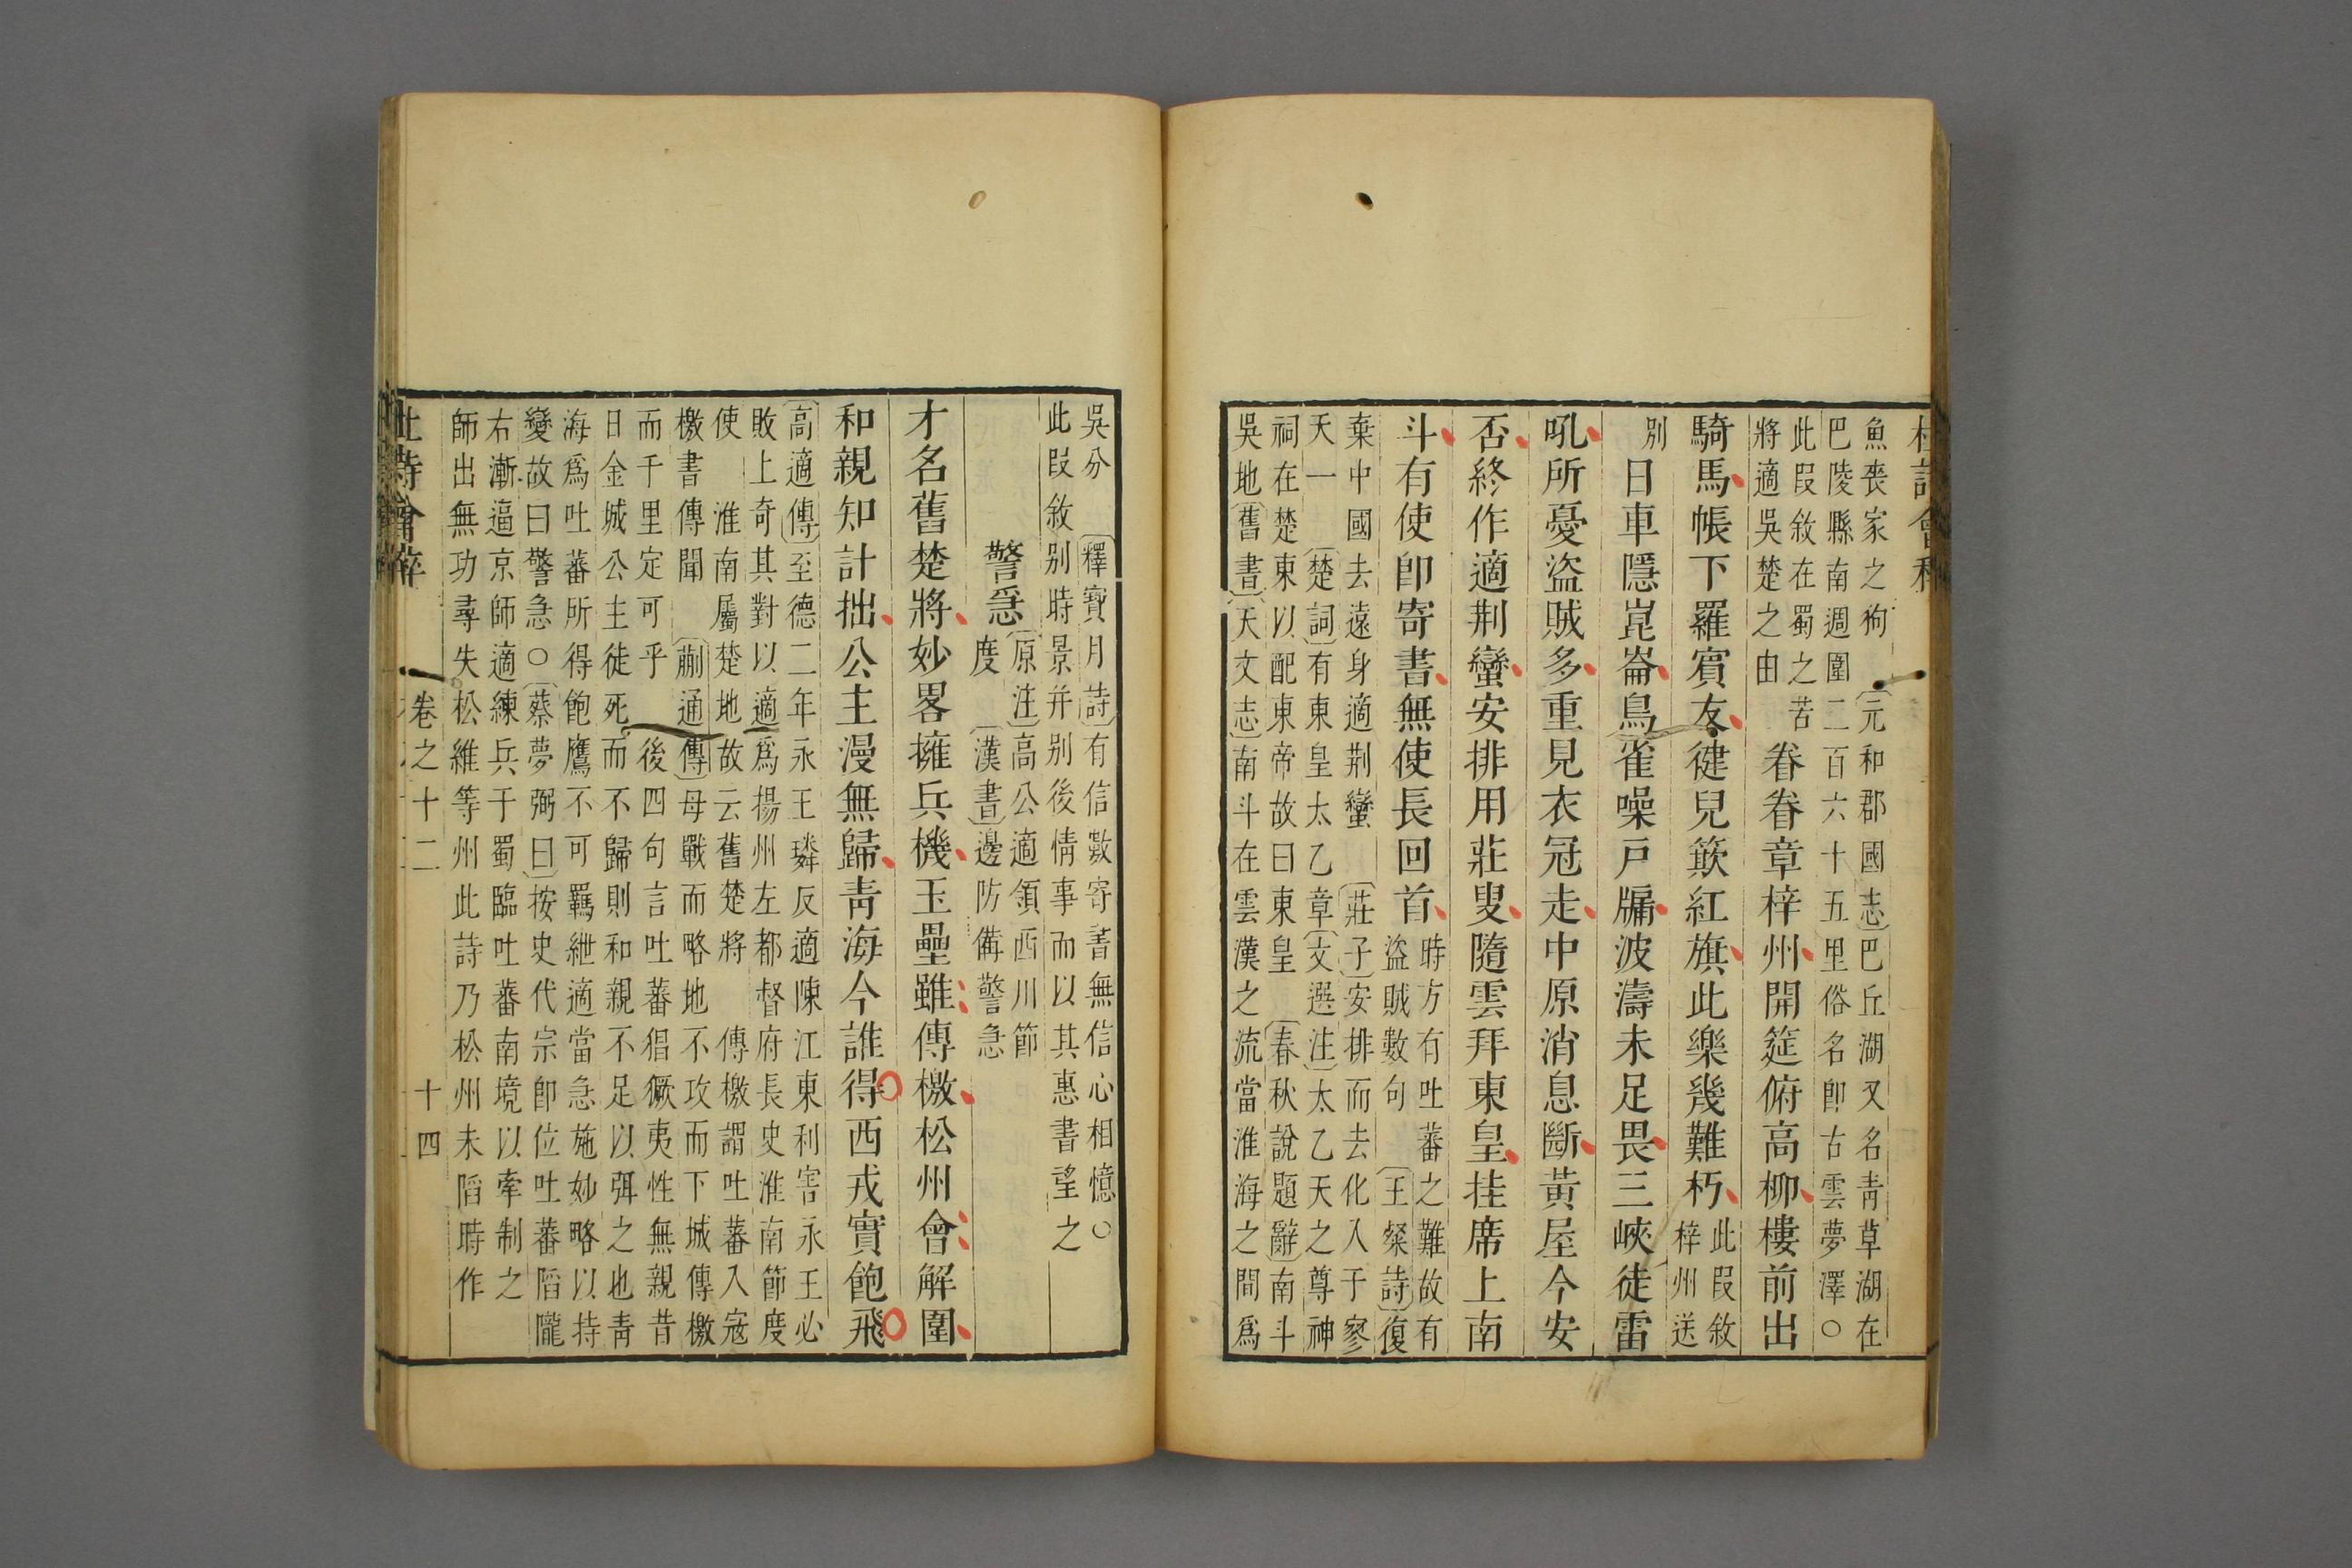 杜詩會稡
魚喪家之狗
〔元和郡國志〕巴丘湖又名青草湖在
巴陵縣南週圍二百六十五里俗名卽古雲夢澤○
此叚敘在蜀之苦
將適吳楚之由
眷眷章梓州開筵俯高柳樓前出
騎馬帳下羅賓友健兒簸紅旗此樂幾難朽
此叚敘
梓州送
別
日車隱崑崙鳥雀噪戸牖波濤未足畏三峽徒雷
吼所憂盜賊多重見衣冠走中原消息斷黃屋今安
否終作適荆蠻安排用莊叟隨雲拜東皇挂席上南
斗有使卽寄書無使長回首
時方有吐蕃之難故有
盜賊數句
〔王粲詩〕復
棄中國去遠身適荆蠻
〔莊子〕安排而去化入于寥
天一
〔楚詞〕有東皇太乙章〔文選注〕太乙天之尊神
祠在楚東以配東帝故曰東皇
〔春秋說題辭〕南斗
吳地〔舊書〕〔天文志〕南斗在雲漢之流當淮海之間爲
吳分
〔釋寶月詩〕有信數寄書無信心相憶○
此叚敘別時景并別後情事而以其惠書望之
警急
〔原注〕高公適領西川節
度
〔漢書〕邊防備警急
才名舊楚將妙畧擁兵機玉壘雖傳檄松州會解圍
和親知計拙公主漫無歸青海今誰得西戎實飽飛
〔高適傳〕至德二年永王璘反適陳江東利害永王必
敗上奇其對以適爲揚州左都督府長史淮南節度
使
淮南屬楚地故云舊楚將
傳檄謂吐蕃入寇
檄書傳聞
〔蒯通傳〕毋戰而略地不攻而下城傳檄
而千里定可乎
後四句言吐蕃猖獗夷性無親昔
日金城公主徒死而不歸則和親不足以弭之也青
海爲吐蕃所得飽鷹不可羈紲適當急施妙略以持
變故曰警急○〔蔡夢弼曰〕按史代宗卽位吐蕃陷隴
右漸逼京師適練兵于蜀臨吐蕃南境以牽制之
師出無功尋失松維等州此詩乃松州未陷時作
杜詩會稡
卷之十二
十四